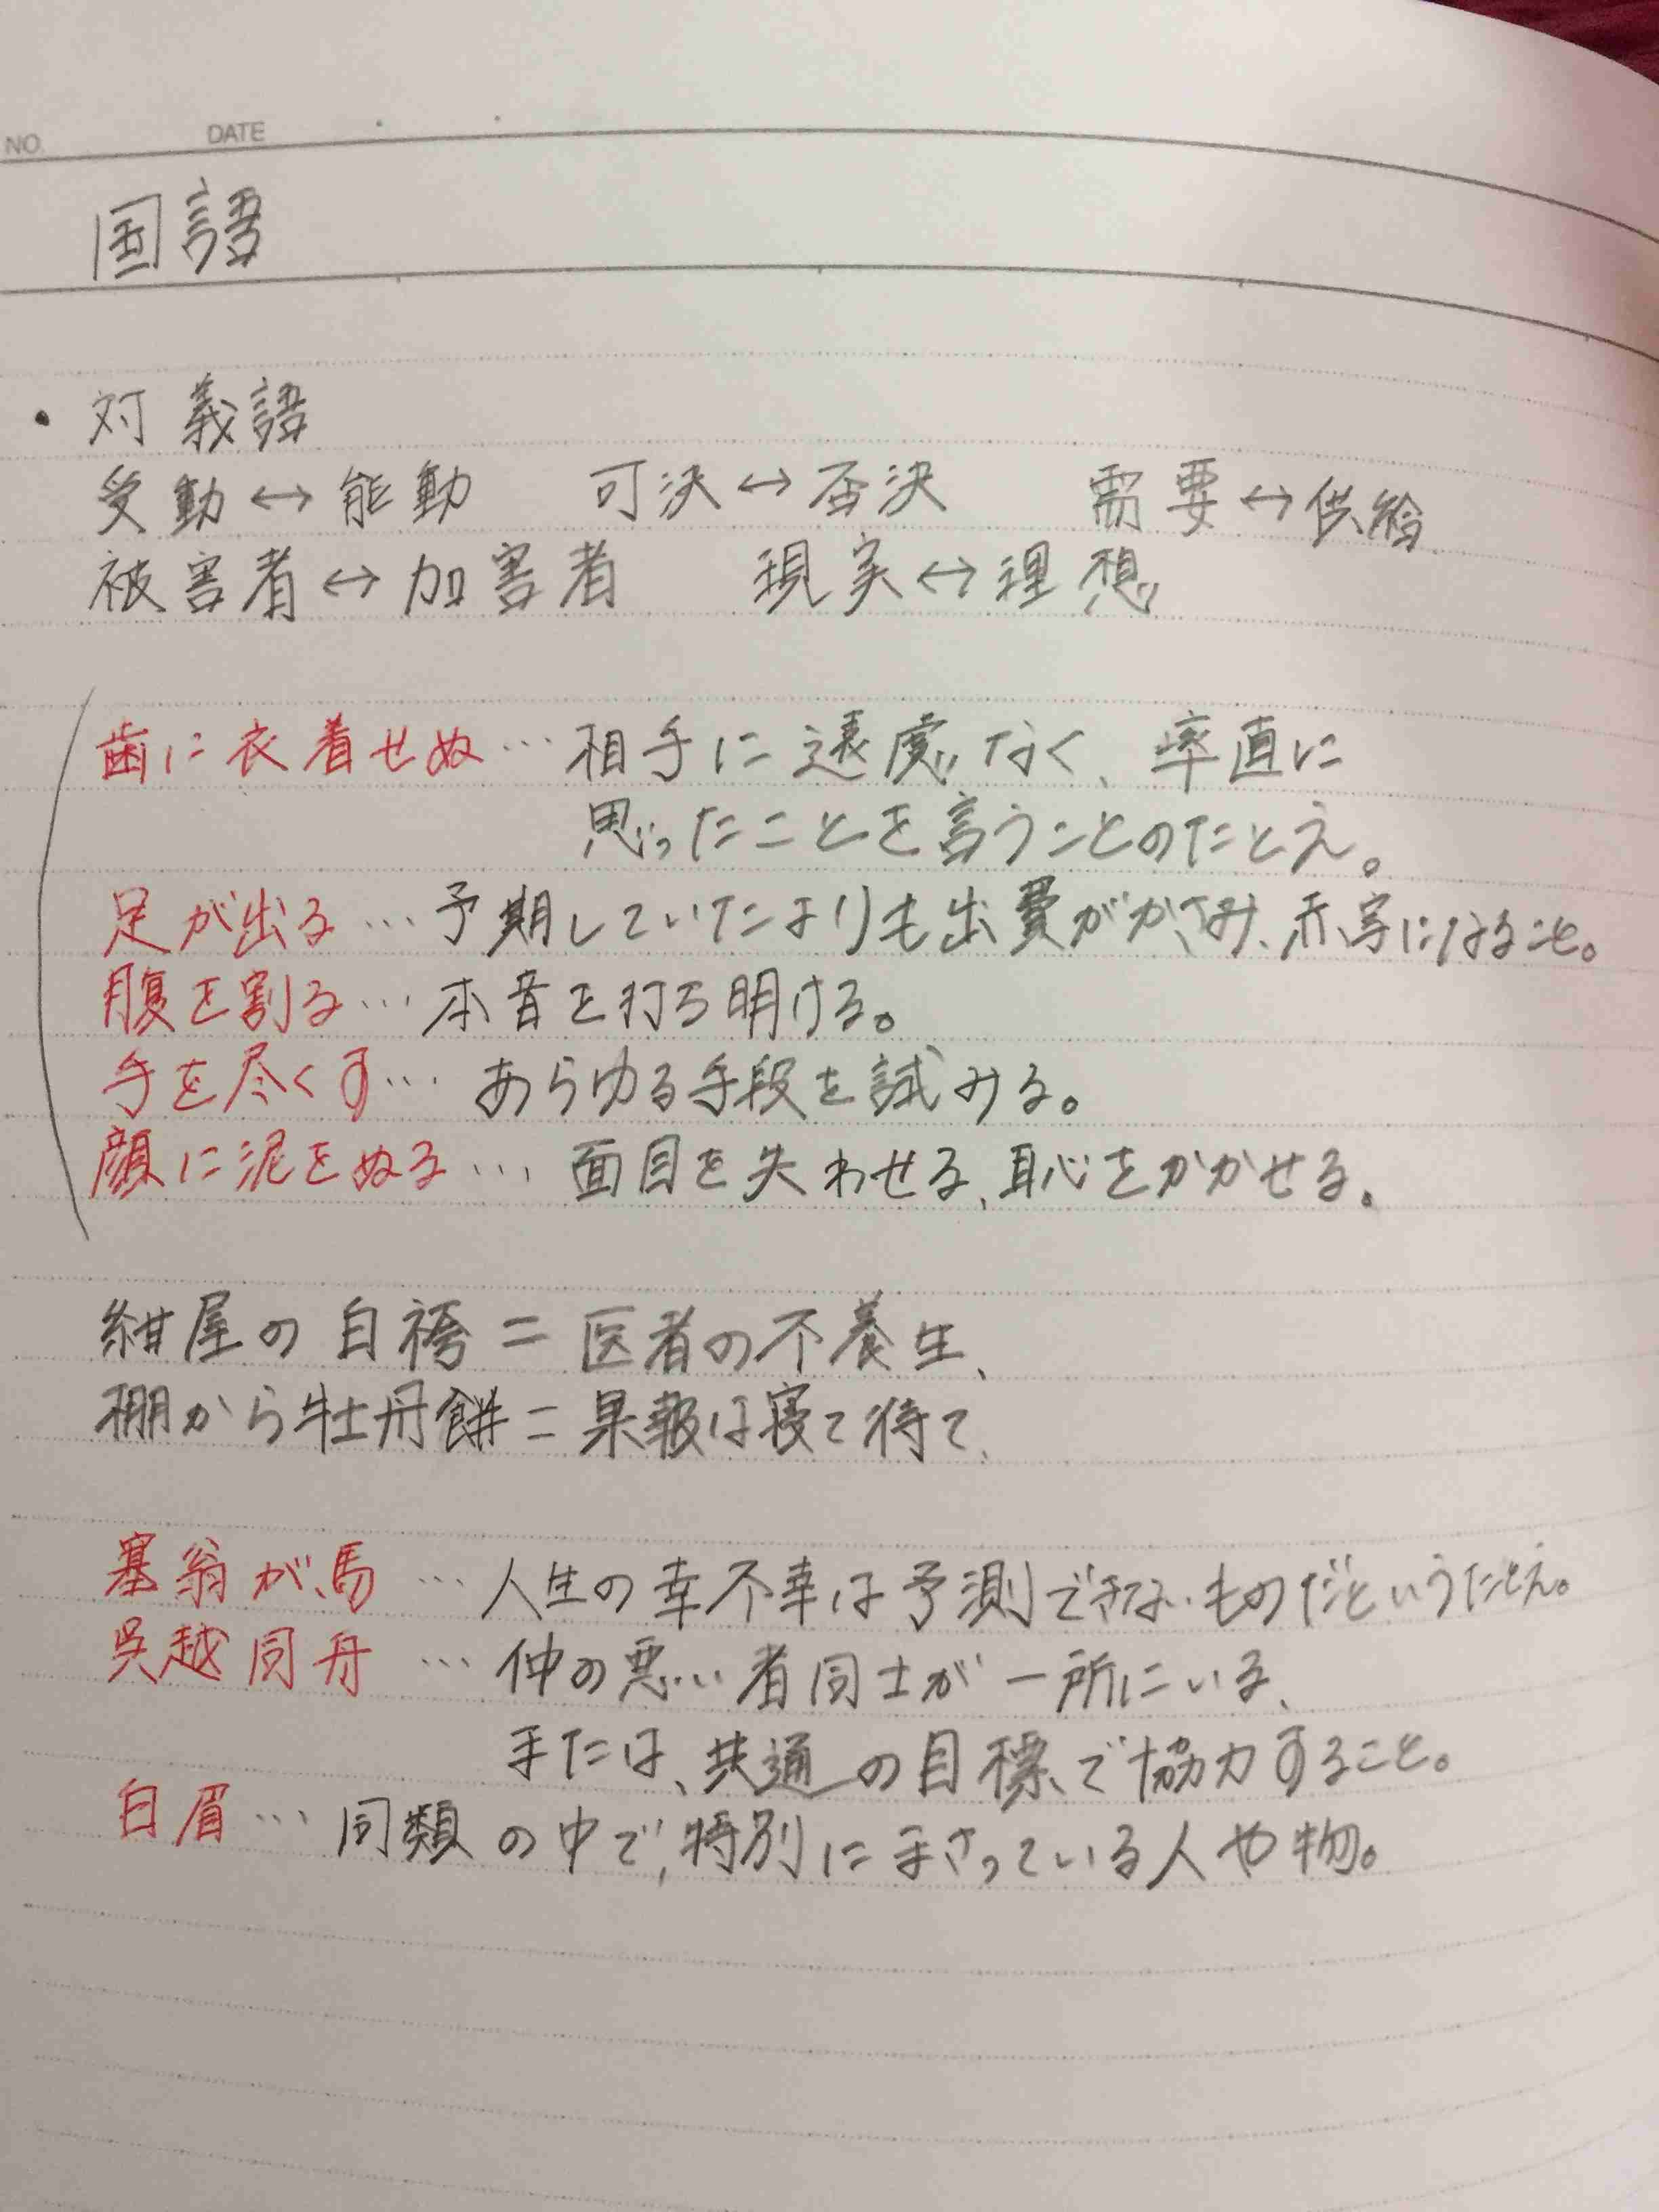 NO.
DATE
国語
・対義語
受動↔能動 可決↔否決 需要↔供給
被害者↔加害者 現実↔理想
歯に衣着せぬ…相手に遠慮なく、率直に
思ったことを言うことのたとえ。
足が出る…予期していたよりも出費がかさみ、赤字になること。
腹を割る…本音を打ち明ける。
手を尽くす…あらゆる手段を試みる。
顔に泥をぬる…面目を失わせる、恥をかかせる。
紺屋の白袴=医者の不養生、
棚から牡丹餅=果報は寝て待て、
塞翁が馬…人生の幸不幸は予測できないものだというたとえ。
呉越同舟…仲の悪い者同士が一所にいる、
または、共通の目標で協力すること。
白眉…同類の中で、特別にまさっている人や物。